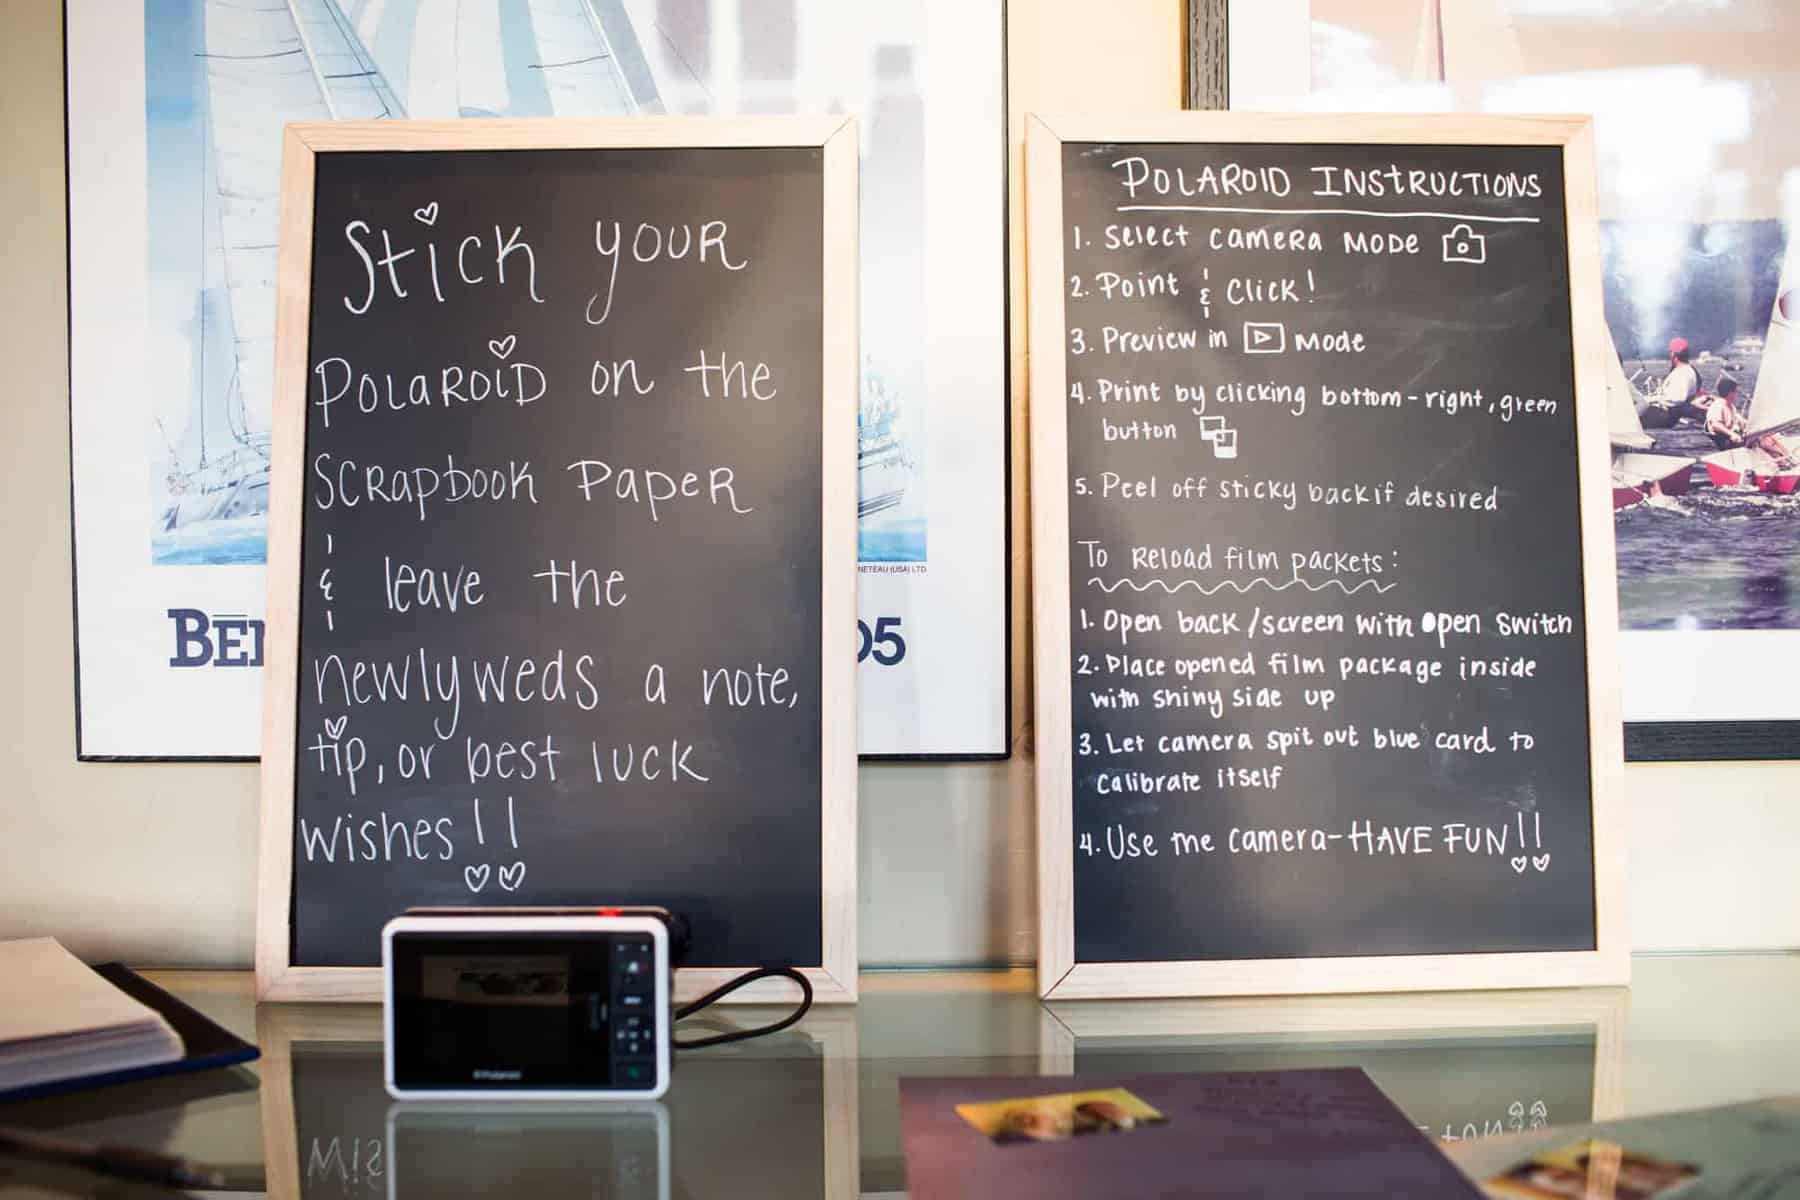 Stick your
Polaroid on the
Scrapbook Paper
& leave the
newlyweds a note,
tip, or best luck
wishes!!
POLAROID INSTRUCTIONS
1. Select camera mode
2. Point & Click!
3. Preview in mode
4. Print by clicking bottom-right, green
button
5. Peel off sticky back if desired
To Reload film packets:
1. Open back/screen with open switch
2. Place opened film package inside
with shiny side up
3. Let camera spit out blue card to
calibrate itself
4. Use the camera-HAVE FUN!!
NETEAU (USA) LTD
BEN
05
Polaroid